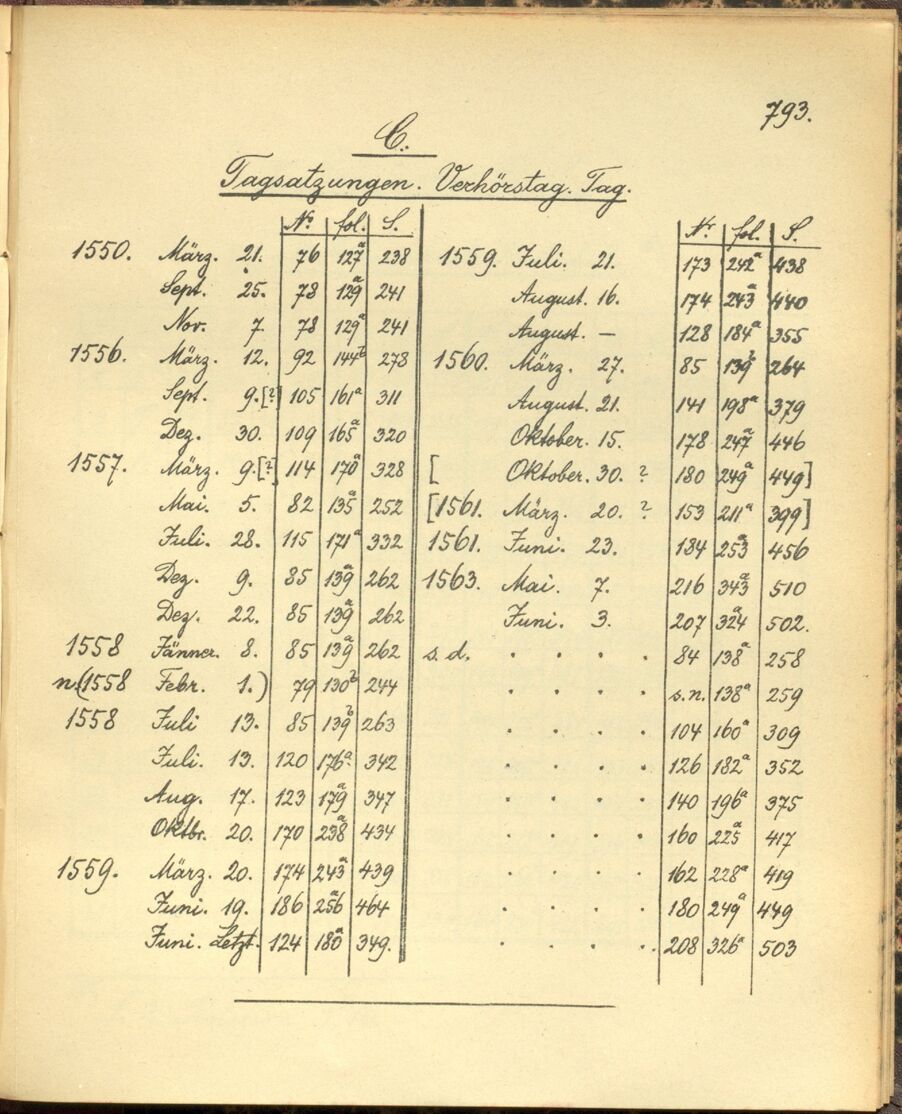 793.
C.
Tagsatzungen. Verhörstag. Tag.
No. fol. S.
1550. März. 21. 76 127a 238
Sept. 25. 78 129a 241
Nov. 7. 78 129a 241
1556. März. 12. 92 144b 278
Sept. 9.[?] 105 161a 311
Dez. 30. 109 165a 320
1557. März. 9.[?] 114 170a 328
Mai. 5. 82 135a 252
Juli. 28. 115 171a 332
Dez. 9. 85 139a 262
Dez. 22. 85 139a 262
1558 Jänner. 8. 85 139a 262
n.(1558 Febr. 1.) 79 130b 244
1558 Juli 13. 85 139b 263
Juli. 13. 120 176a 342
Aug. 17. 123 179a 347
Oktbr. 20. 170 238a 434
1559. März. 20. 174 243a 439
Juni. 19. 186 256a 464
Juni. Letzt. 124 180a 349.
Nr. fol. S.
1559. Juli. 21. 173 242a 438
August. 16. 174 243a 440
August. — 128 184a 355
1560. März. 27. 85 139b 264
August. 21. 141 198a 379
Oktober. 15. 178 247a 446
[ Oktober. 30. ? 180 249a 449]
[1561. März. 20. ? 153 211a 399]
1561. Juni. 23. 184 253a 456
1563. Mai. 7. 216 343a 510
Juni. 3. 207 324a 502.
s. d. . . . . 84 138a 258
. . . . s.n. 138a 259
. . . . 104 160a 309
. . . . 126 182a 352
. . . . 140 196a 375
. . . . 160 225a 417
. . . . 162 228a 419
. . . . 180 249a 449
. . . . 208 326a 503